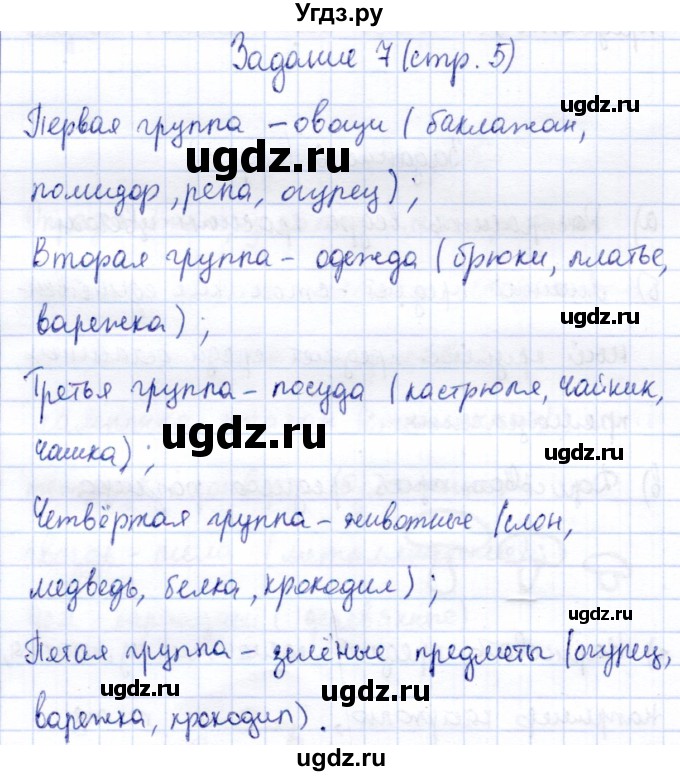 Угдз.ру
Задание 7 (стр. 5)
Первая группа - овощи ( баклажан,
ugdz.ru ugdz.ru
помидор, репа, огурец) ;
Вторая группа - одежда ( брюки, платье,
варежка) ;
ugdz.ru
Третья группа - посуда ( кастрюля, чайник,
ugdz.ru
чашка) ;
ugdz.ru
Четвёртая группа - животные (слон,
медведь, белка, крокодил) ;
ugdz.ru
Пятая группа - зелёные предметы (огурец,
ugdz.ru ugdz.ru
варежка, крокодил) .
ugdz.ru